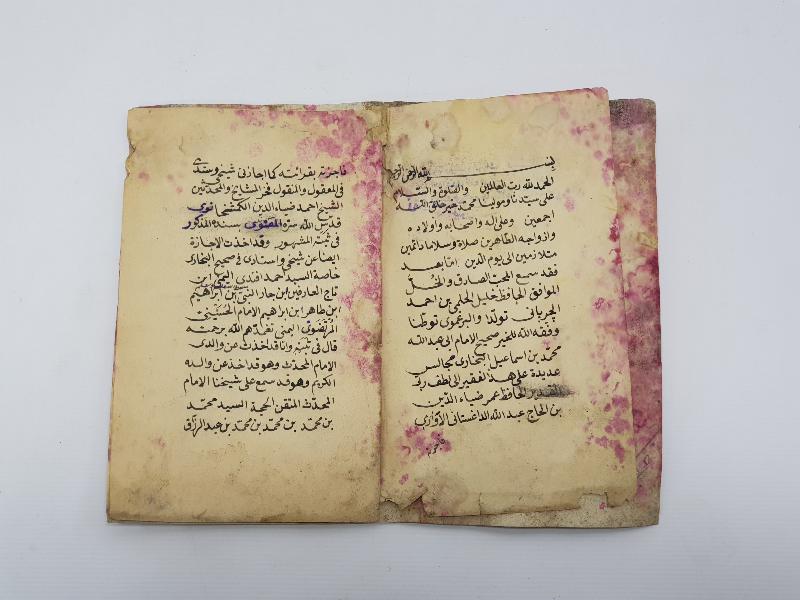 بسم الله الرحمن الرحيم
الحمد لله رب العالمين والصلوة والسلام
على سيدنا ومولانا محمد خير خلق الله
اجمعين وعلى اله واصحابه واولاده
وازواجه الطاهرين صلاة وسلاما دائمين
متلازمين الى يوم الدين اما بعد
فقد سمع المحب الصادق والخل
الموافق الحافظ خليل الحلمي بن احمد
تولدا والبرغموى توطنا
وفقه الله للخير صحيح الامام ابى عبد الله
محمد بن اسماعيل البخارى مجالس
عديدة على هذا الفقير الى لطف ربه
القدير الحافظ عمر ضياء الدين
بن الحاج عبد الله الداغستانى الآوارى
فاجزته
فاجزته بقرائته كما اجازنى شيخى وسندى
فى المعقول والمنقول فخر المشايخ والمحدثين
الشيخ احمد ضياء الدين الكمشخانوى
قدس الله سره بسنده المذكور
فى ثبته المشهور وقد اخذت الاجازة
ايضا عن شيخى واستاذى فى صحيح البخارى
خاصة السيد احمد افندى ابن
تاج العارفين بن جار النبى بن ابراهيم
ابن طاهر ابن ابراهيم الامام الحسينى
المرتضوى اليمنى تغمدهم الله برحمته
قال فى ثبته وانا قد اخذت عن والدى
الامام المحدث وهو قد اخذ عن والده
الكريم وهو قد سمع على شيخنا الامام
المحدث المتقن الحجة السيد محمد
بن محمد بن محمد بن محمد بن عبد الرزاق